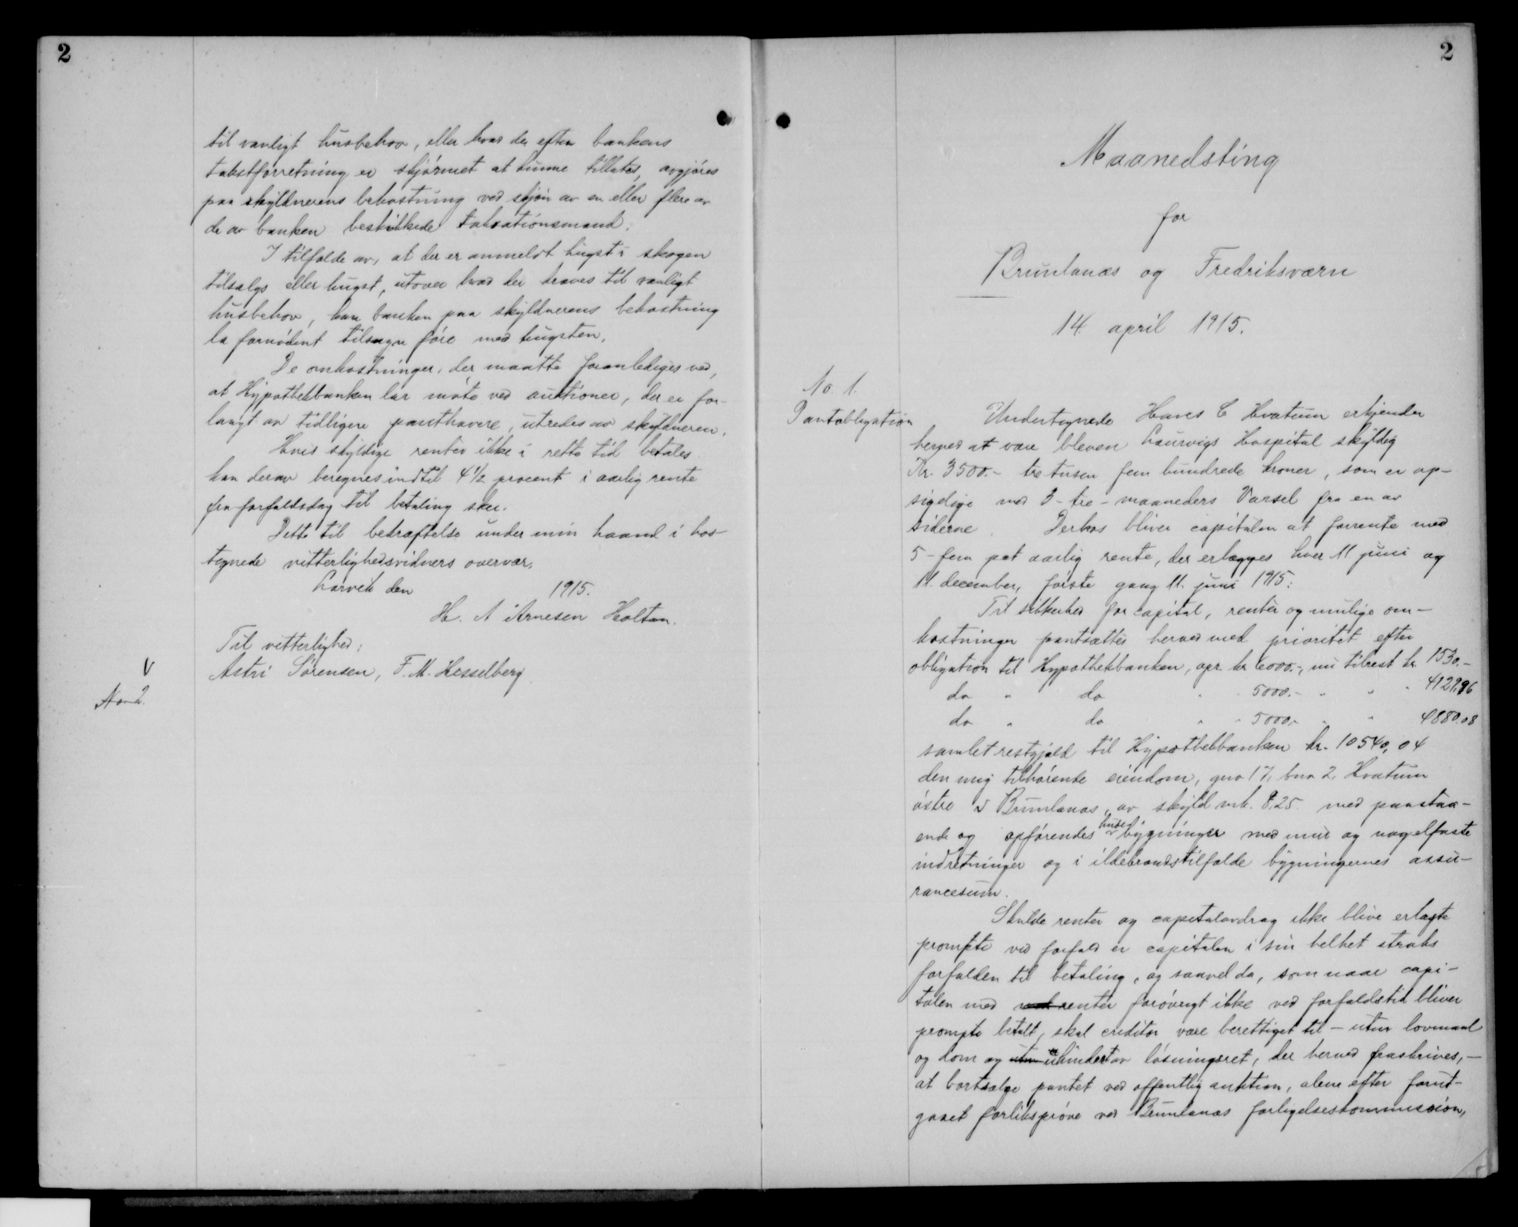 2
til vanligt husbehov, eller hvad der efter bankens
takstforretning er skjønnet at kunne tillates, avgjøres
paa skyldnerens bekostning ved skjøn av en eller flere av
de av banken beskikkede taksationsmænd.
I tilfælde av, at der er anmeldt hugst i skogen
tilsalgs eller hugst, utover hvad der kræves til vanligt
husbehov, kan banken paa skyldnerens bekostning
la fornødent tilsyn føre med hugsten.
De omkostninger, der maatte foranlediges ved,
at Hypothekbanken lar møte ved auktioner, der er for-
langt av tidligere panthavere, utredes av skyldneren.
Hvis skyldige renter ikke i rette tid betales
kan derav beregnes indtil 4 1/2 procent i aarlig rente
fra forfaldsdag til betaling sker.
Dette til bekræftelse under min haand i hos-
tegnede vitterlighedsvidners overvær.
Larvik den 1915.
H. A Arnesen Holtan.
Til vitterlighed:
V
Astri Sørensen, F. M. Hesselberg
2
Maanedsting
for
Brunlanæs og Fredriksværn
14 april 1915.
No. 1.
Pantobligation
Undertegnede Hans C Kvatum erkjender
herved at være bleven Laurvigs Hospital skyldig
Kr. 3500.- tre tusen fem hundrede kroner, som er op-
sigelige med 3 - tre - maaneders Varsel fra en av
siderne. Derhos bliver capitalen at forrente med
5 - fem pct aarlig rente, der erlægges hver 11 juni og
11. december, første gang 11. juni 1915.
Til sikkerhed for capital, renter og mulige om-
kostninger pantsættes herved med prioritet efter
obligation til Hypothekbanken, opr. kr 6000.-, nu tilrest kr 1530.-
do " do " " 5000.- " " " 4129.96
do " do " " 5000.- " " 4880.08
samlet restgjæld til Hypothekbanken kr. 10540,04
den mig tilhørende eiendom, gno 17, bno 2, Kvatum
østre i Brunlanæs, av skyld mk. 8,25 med paastaa-
ende og opførendes huse bygninger med mur og nagelfaste
indretninger og i ildebrandstilfælde bygningernes assu-
rancesum.
Skulde renter og capitalavdrag ikke blive erlagte
prompte ved forfald er capitalen i sin helhet straks
forfalden til betaling, og saavel da, som naar capi-
talen med renter forøvrigt ikke ved forfaldstid bliver
prompte betalt, skal creditor være berettiget til - uten lovmaal
og dom og uhindret av løsningsret, der herved fraskrives, -
at bortsælge pantet ved offentlig auktion, alene efter forut-
gaaet forliksprøve ved Brunlanæs forligelseskommission,